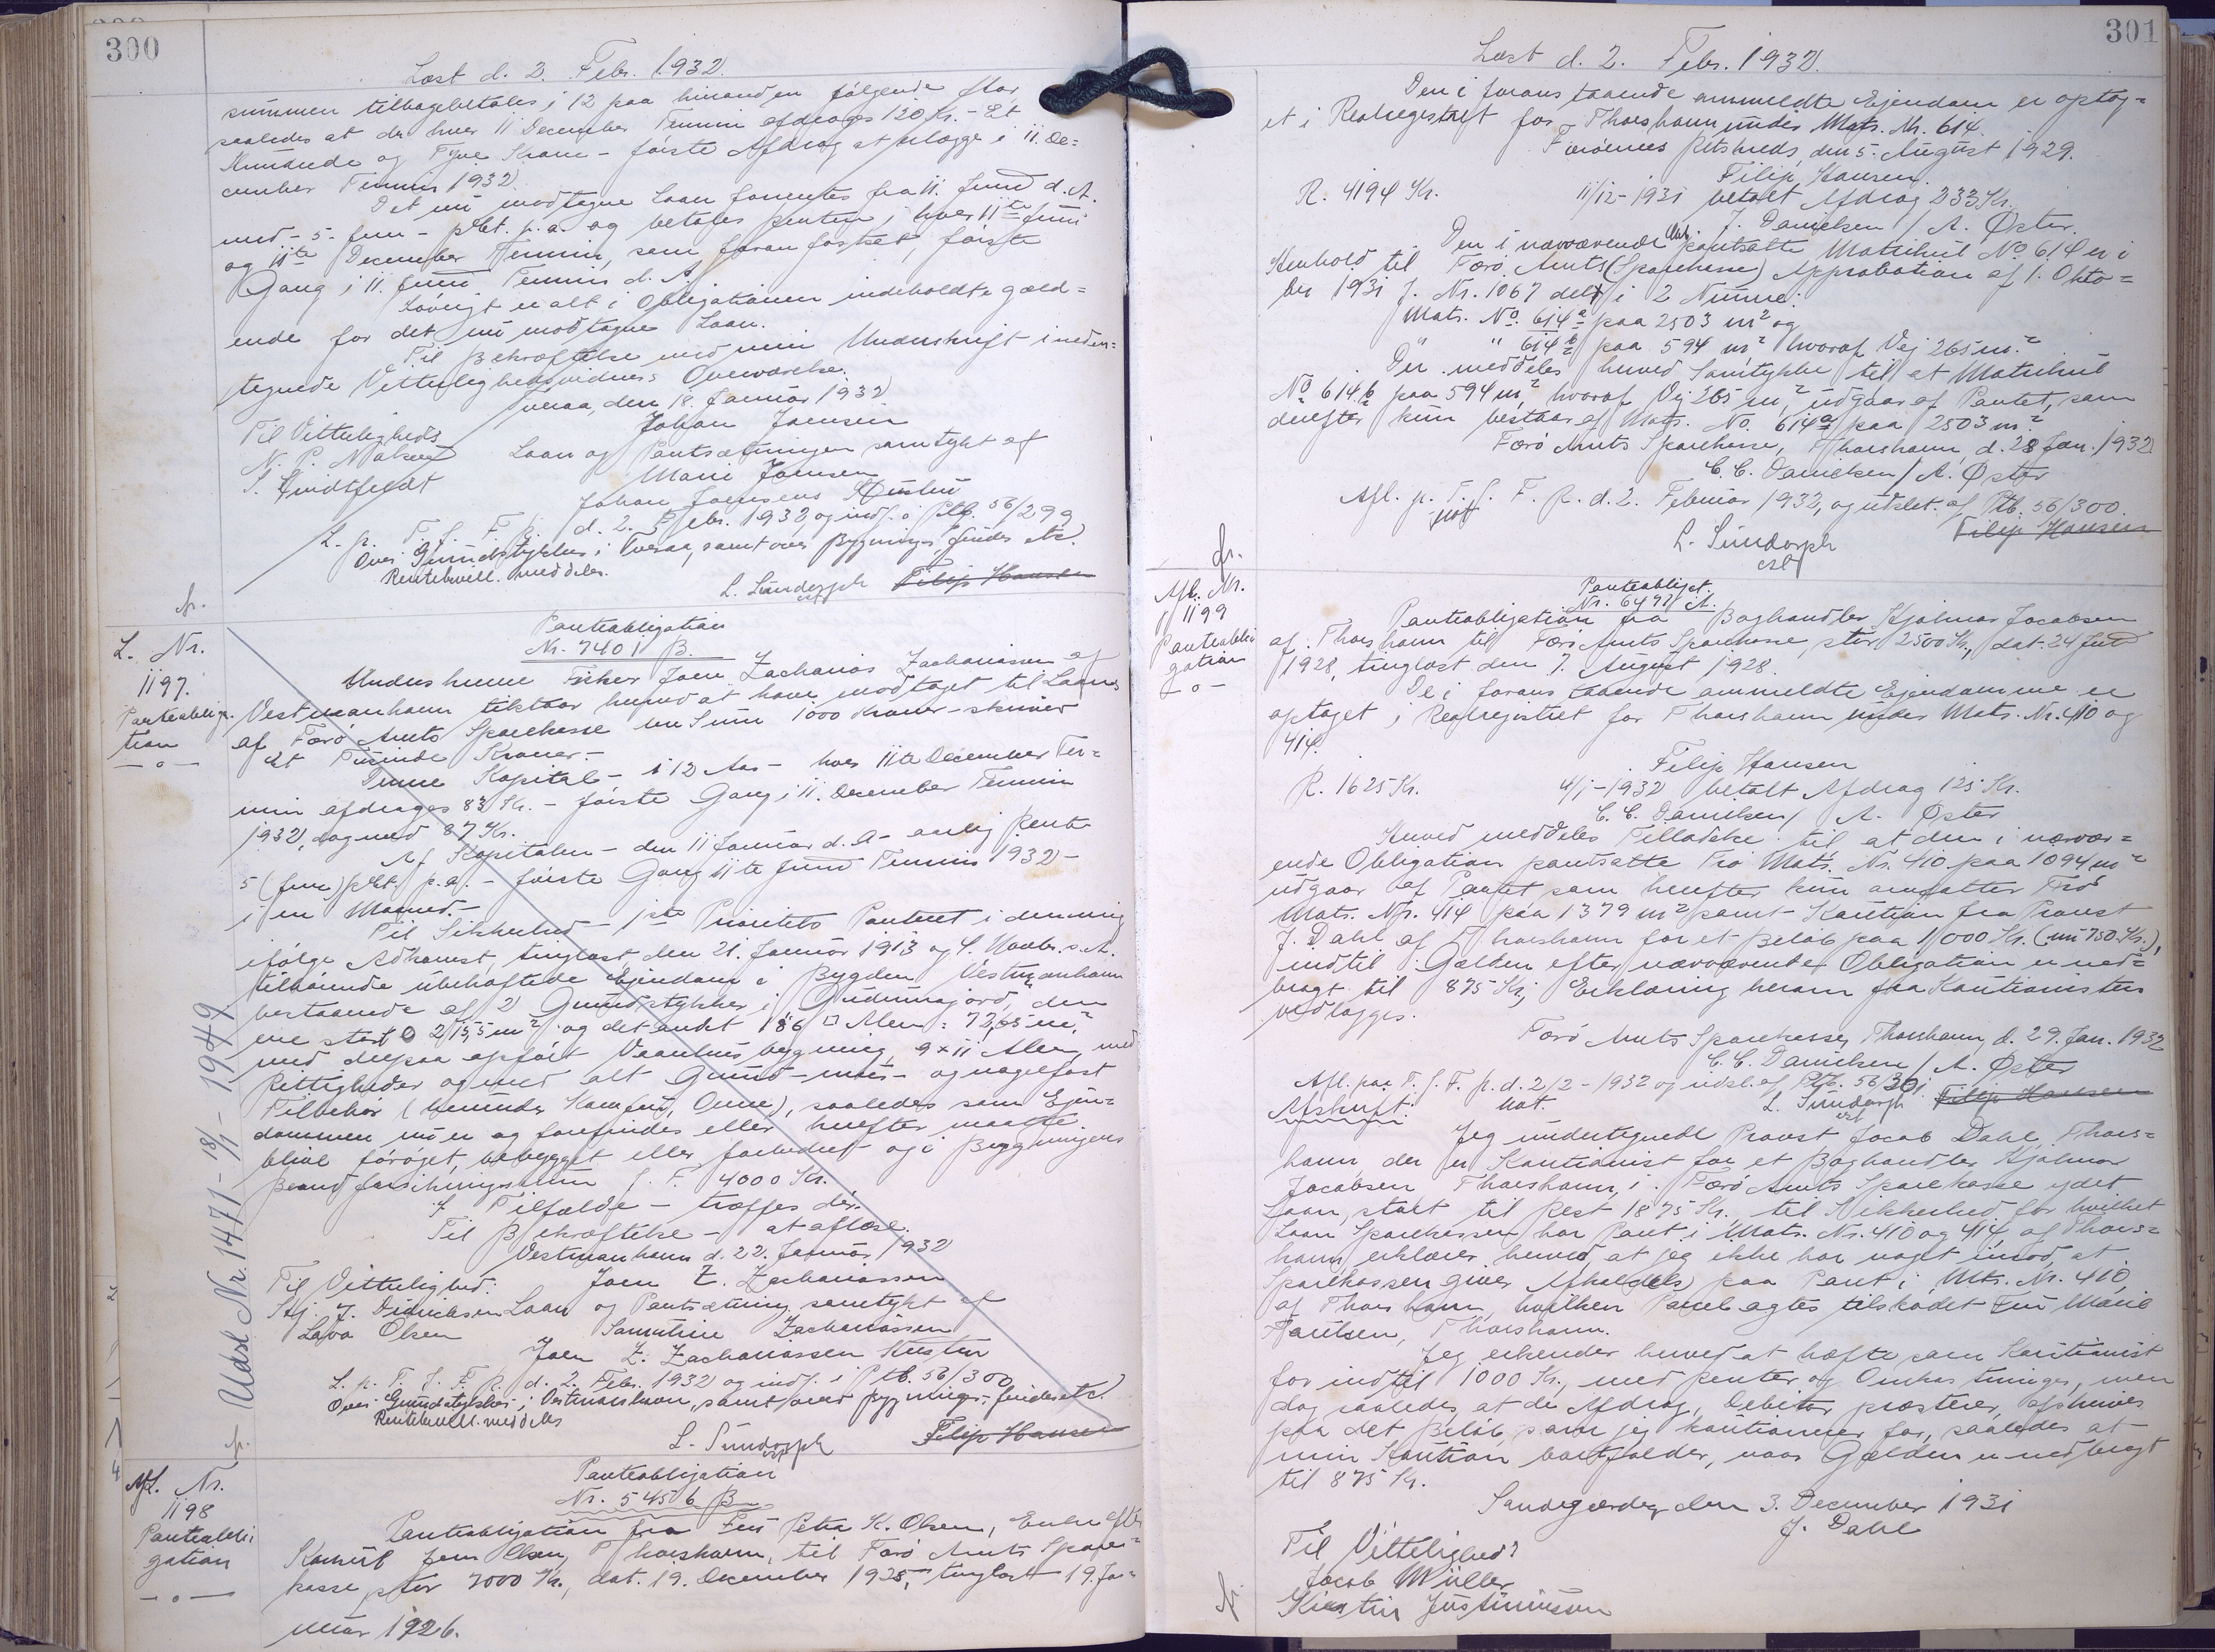 300
Læst d. 2. Febr. 1932.
summen tilbagebetales i 12 paa hinanden følgende Aar
saaledes at der hver 11 December Termin afdrages 120 Kr. - Et
Hundrede og Tyve Kroner - første Afdrag at erlægge i 11. De=
cember Termin 1932.
Det nu modtagne Laan forrentes fra 11. Juni d. A.
med - 5 - fem - pCt. p.a. og betales Renten i hver 11te Juni
og 11te December Termin, som foran fastsat, første
Gang i 11. Juni Termin d. A.
Iøvrigt er alt i Obligationen indeholdte gæld=
ende for det nu modtagne Laan.
Til Bekræftelse med min Underskrift i neden=
tegnede Vitterlighedsvidners Overværelse.
Tveraa, den 18. Januar 1932
Til Vitterligheds Johan Joensen
N. P. Nolsøe Laan og Pantsætningen samtykt af
S. Lindtfeldt Marie Joensen
Johan Joensens Hustru
L. p. T. f. F. R. d. 2. Febr. 1932 og indf. i Ptb. 56/299
Over Grundstykker i Tveraa, samt over Bygninger findes etc.
Rentebevill. meddeles.
L. Sundorph Filip Hansen
L. Nr.
1197.
Panteobliga-
tion
Panteobligation
Nr. 7401 B.
Underskrevne Fisker Joen Zacharias Zachariassen af
Vestmanhavn tilstaar herved at have modtaget til Laans
af Færø Amts Sparekasse en Sum 1000 Kroner - skriver
Et Tusinde Kroner. -
Denne Kapital - i 12 Aar - hver 11te December Ter=
min afdrages 83 Kr. - første Gang i 11. December Termin
1932, dog med 87 Kr.
Af Kapitalen - den 11 Januar d. A. - aarlig Rente
5 (fem) pCt. p.a. - første Gang 11te Juni Termin 1932 -
i en Maaned. -
Til Sikkerhed - 1ste Prioritets Panteret i den mig
ifølge Adkomst, tinglæst den 21. Januar 1913 og 4. Novbr. s. A.
tilhørende ubehæftede Ejendom i Bygden Vestmanhavn
bestaaende af 2 Grundstykker i Gudrunajørd, den
ene stor 215,5 m² og det andet 186 □ Alen = 72,65 m²
med derpaa opført Vaaningshusbygning, 9 x 11 Alen, med
Rettigheder og med alt Grund- mur- og nagelfast
Tilbehør (herunder Komfur, Ovne), saaledes som Ejen=
dommen nu er og forefindes eller herefter maatte
blive forøget, bebygget eller forbedret og i Bygningens
Brandforsikringssum f. T. 4000 Kr.
I Tilfælde - træffes der.
Til Bekræftelse - at aflæse.
Vestmanhavn d. 22. Januar 1932
Til Vitterlighed: Joen Z. Zachariassen
Hj. J. Didriksen Laan og Pantsætning samtykt af
Lava Olsen Samuline Zachariassen
Joen Z. Zachariassen Hustru
L. p. T. f. F. R. d. 2. Febr. 1932 og indf. i Ptb. 56/300
Over Grundstykker i Vestmanhavn, samt over Bygninger findes etc.
Rentebevill. meddeles
L. Sundorph Filip Hansen
Udsl. Nr. 1471 - 18/1 - 1949
Afl. Nr.
1198
Panteobli
gation
Panteobligation
Nr. 5456 B
Panteobligation fra Fru Petra K. Olsen, Enke efter
Konsul Jens Olsen, Thorshavn, til Færø Amts Spare=
kasse, stor 7000 Kr., dat. 19. December 1925, tinglæst 19. Ja=
nuar 1926.
301
Læst d. 2. Febr. 1932.
Den i foranstaaende ommeldte Ejendom er optag=
et i Realregistret for Thorshavn under Matr. Nr. 614.
Færøernes Retskreds, den 5. August 1929.
Filip Hansen
R. 4194 Kr. 11/12 - 1931 betalt Afdrag 233 Kr.
J. Danielsen / A. Øster.
Den i nærværende Obl. pantsatte Matrikul No. 614 er i
Henhold til Færø Amts (Sparekasse) Approbation af 1. Okto=
ber 1931 J. Nr. 1067 delt i 2 Numre:
Matr. No. 614a paa 2503 m² og
" " 614b paa 594 m² hvoraf Vej 265 m.²
Der meddeles herved Samtykke til at Matrikul
No. 614 b paa 594 m², hvoraf Vej 265 m², udgaar af Pantet, som
derefter kun bestaar af Matr. No. 614a paa 2503 m.²
Færø Amts Sparekasse, Thorshavn, d. 28 Jan. 1932
C. C. Danielsen / A. Øster
Afl. p. T. f. F. R. d. 2. Februar 1932, og udslet. af Ptb. 56/300.
Not
L. Sundorph Filip Hansen
Afl. Nr.
1199
Panteobli
gation
Panteobligat.
Nr. 6477 A.
Panteobligation fra Boghandler Hjalmar Jacobsen
af Thorshavn til Færø Amts Sparekasse, stor 2500 Kr., dat. 24 Juli
1928, tinglæst den 7. August 1928.
De i foranstaaende ommeldte Ejendomme er
optaget i Realregistret for Thorshavn under Matr. Nr. 410 og
414.
Filip Hansen
R. 1625 Kr. 4/1 - 1932 betalt Afdrag 125 Kr.
C. C. Danielsen / A. Øster
Herved meddeles Tilladelse til at den i nærvær=
ende Obligation pantsatte Trø Matr. Nr. 410 paa 1094 m²
udgaar af Pantet som herefter kun omfatter Trø
Matr. Nr. 414 paa 1379 m² samt Kaution fra Provst
J. Dahl af Thorshavn for et Beløb paa 1000 Kr. (nu 750 Kr.),
indtil Gælden efter nærværende Obligation er ned=
bragt til 875 Kr.; Erklæring herom fra Kautionisten
vedlægges.
Færø Amts Sparekasse, Thorshavn, d. 29. Jan. 1932
C. C. Danielsen / A. Øster
Afl. paa T. f. F. R. d. 2/2 - 1932 og udsl. af Ptb. 56/301
Afskrift. Not. L. Sundorph Filip Hansen
Jeg undertegnede Provst Jacob Dahl, Thors=
havn, der er Kautionist for et Boghandler Hjalmar
Jacobsen Thorshavn, i Færø Amts Sparekasse ydet
Laan, stort til Rest 1875 Kr., til Sikkerhed for hvilket
Laan Sparekassen har Pant i Matr. Nr. 410 og 414 af Thors=
havn, erklærer herved, at jeg ikke har noget imod, at
Sparekassen giver Afkald paa Pant i Mtr. Nr. 410
af Thorshavn, hvilken Parcel agtes tilskødet Fru Marie
Poulsen, Thorshavn.
Jeg erkender herved at hæfte som Kautionist
for indtil 1000 Kr., med Renter og Omkostninger, men
dog saaledes, at de Afdrag, Debitor præsterer, afskrives
paa det Beløb, som jeg kautionerer for, saaledes at
min Kaution bortfalder, naar Gælden er nedbragt
til 875 Kr.
Sandegærde, den 3. December 1931
J. Dahl
Til Vitterlighed:
Jacob Müller
Kirstin Justinussen